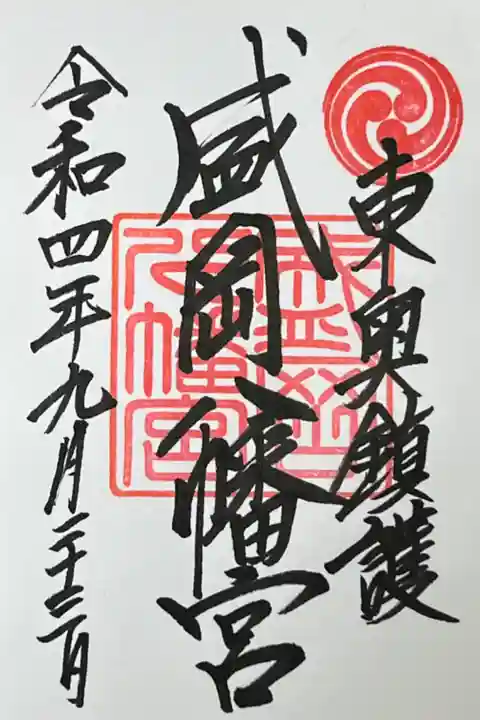 東奥鎮護
盛岡八幡宮
盛岡八幡宮
令和四年九月二十三日